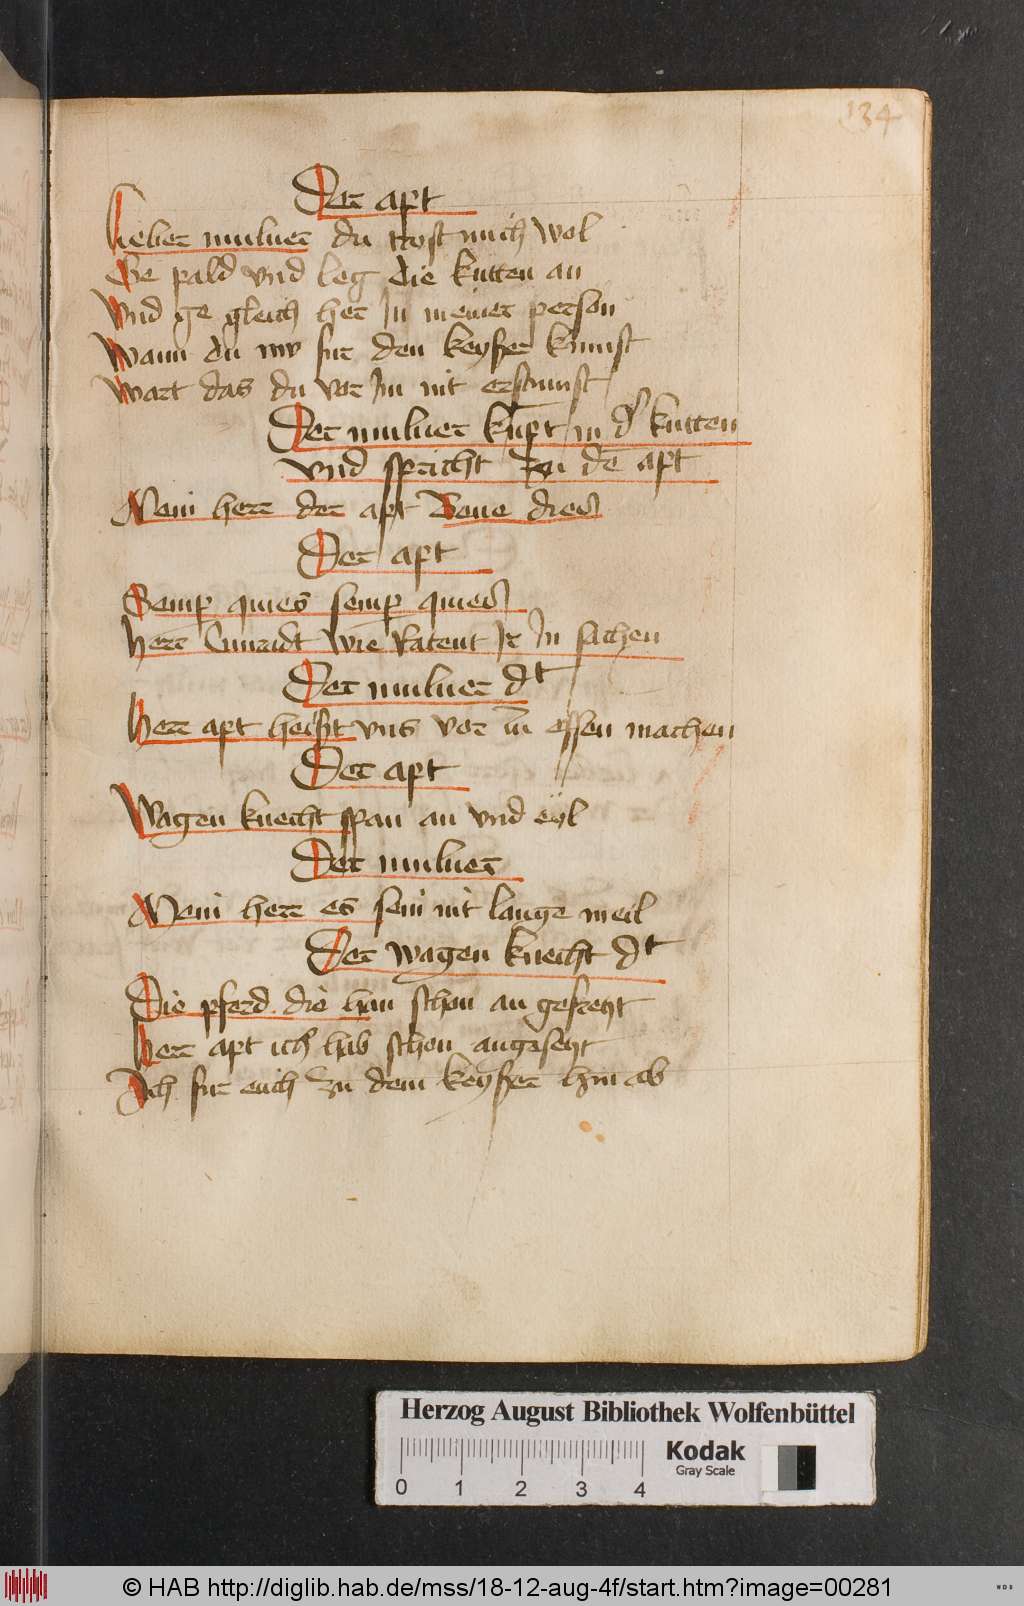 134
Der apt
Lieber mulner du trost mich wol
Ge pald vnd leg die kutten an
Vnd ge gleich her In meiner person
Wann du nw fur den keyser kumst
Wart das du vor Im nit erstumst
Der mulner kūpt in dʼ kutten
vnd spricht zu dē apt
Mein herr der apt Bene dies
Der apt
Semp quies semp quies
Herr Cunradt wie Ratent Ir In sachen
Der mulner dt
Herr apt heist vns vor ein essen machen
Der apt
Wagen knecht span an vnd eyl
Der mulner
Mein herr es sein nit lange weil
Der wagen knecht dt
Die pferd die han schon an gefreyt
Herr apt ich hab schon angeseyt
Ich fur euch zu dem keyser hin ab
Herzog August Bibliothek Wolfenbüttel
0 1 2 3 4
Kodak
Gray Scale
© HAB http://diglib.hab.de/mss/18-12-aug-4f/start.htm?image=00281